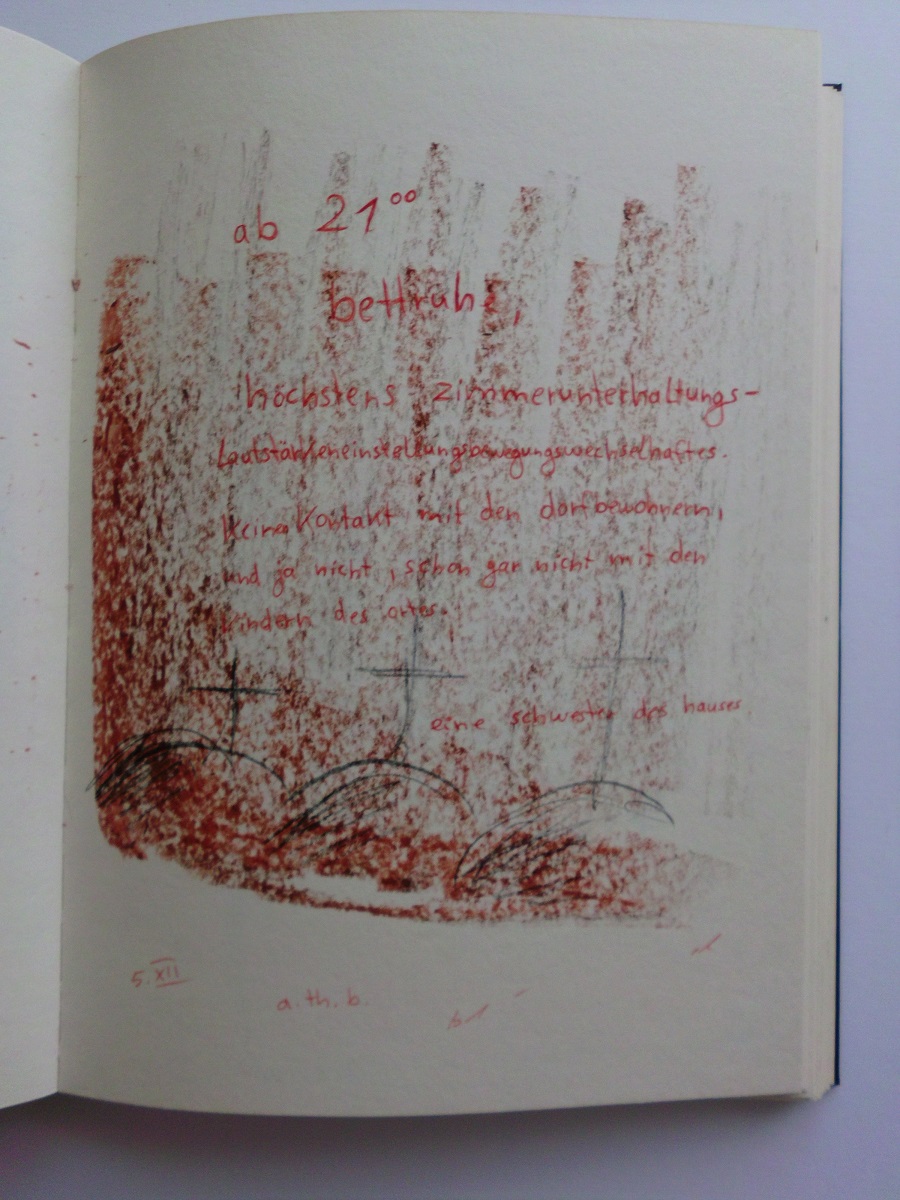 ab 21⁰⁰
bettruhe,
höchstens zimmerunterhaltungs-
lautstärkeneinstellungsbewegungswechselhaftes.
Keine Kontakt mit den dorfbewohnern,
und ja nicht, schon gar nicht mit den
kindern des ortes.
eine schwester des hauses
5. XII
a. th. b.